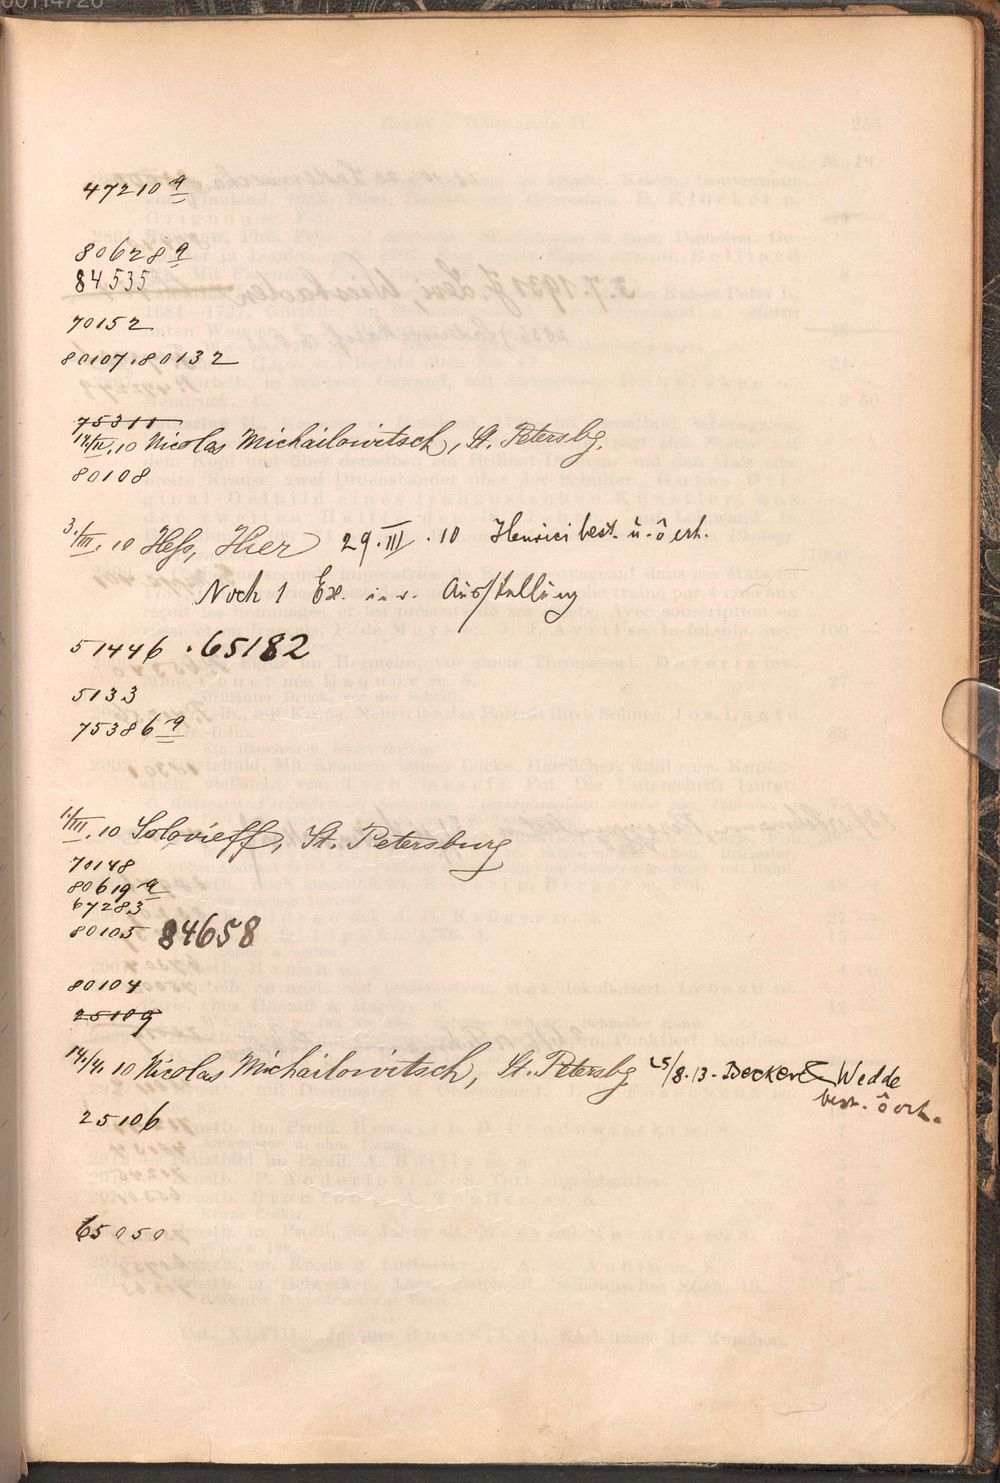 47210 a
80628 a
84535
70152
80107.80132
75311
14/III.10 Nicolas Michailowitsch, St. Petersbg.
80108
3./III.10 Hess, Hier 29.III.10 Henrici best. u. ô erh.
Noch 1 Ex. in r. Ausstellung
51446 . 65182
5133
75386 a
1/III.10 Solovieff, St. Petersburg
70148
80619 a
67283
80105 84658
80104
25109
14./4.10 Nicolas Michailowitsch, St. Petersbg 25/8.13. Becker & Wedde
best. ô erh.
25106
65050